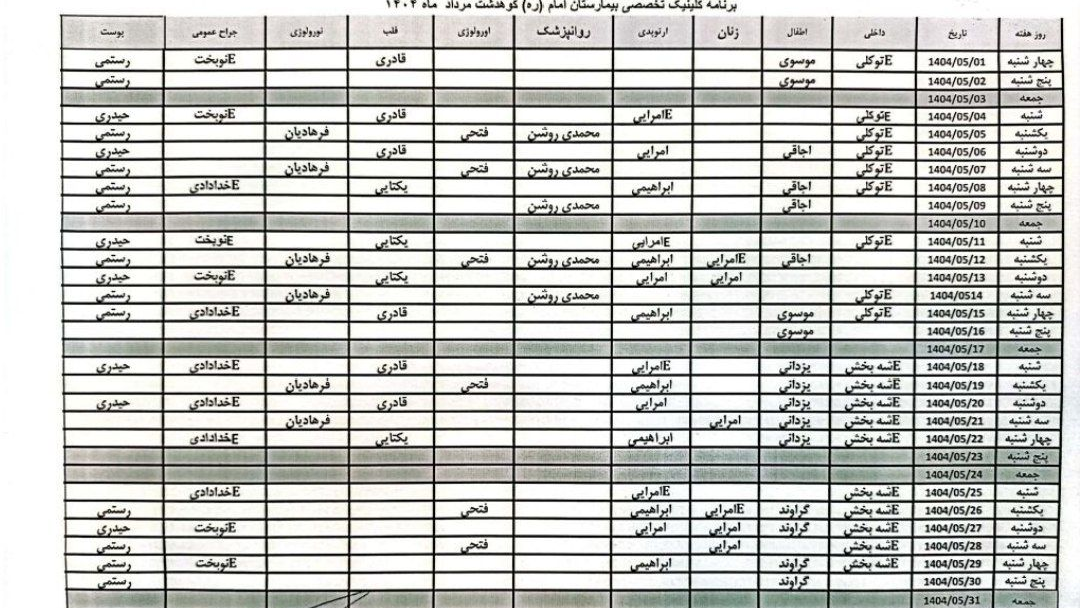 برنامه کلینیک تخصصی بیمارستان امام (ره) کوهدشت مرداد ماه ۱۴۰۴
روز هفته تاریخ داخلی اطفال زنان ارتوپدی روانپزشک اورولوژی قلب نورولوژی جراح عمومی پوست
چهار شنبه 1404/05/01 Eتوکلی موسوی قادری Eنوبخت رستمی
پنج شنبه 1404/05/02 موسوی رستمی
جمعه 1404/05/03
شنبه 1404/05/04 Eتوکلی Eامرایی قادری Eنوبخت حیدری
یکشنبه 1404/05/05 Eتوکلی محمدی روشن فتحی فرهادیان رستمی
دوشنبه 1404/05/06 Eتوکلی اجاقی امرایی قادری حیدری
سه شنبه 1404/05/07 Eتوکلی محمدی روشن فتحی فرهادیان رستمی
چهار شنبه 1404/05/08 Eتوکلی اجاقی ابراهیمی یکتایی Eخدادادی رستمی
پنج شنبه 1404/05/09 اجاقی محمدی روشن رستمی
جمعه 1404/05/10
شنبه 1404/05/11 Eتوکلی Eامرایی یکتایی Eنوبخت حیدری
یکشنبه 1404/05/12 اجاقی Eامرایی ابراهیمی محمدی روشن فتحی فرهادیان رستمی
دوشنبه 1404/05/13 امرایی امرایی یکتایی Eنوبخت حیدری
سه شنبه 1404/0514 Eتوکلی محمدی روشن فرهادیان رستمی
چهار شنبه 1404/05/15 Eتوکلی موسوی ابراهیمی قادری Eخدادادی رستمی
پنج شنبه 1404/05/16 موسوی
جمعه 1404/05/17
شنبه 1404/05/18 Eشه بخش یزدانی Eامرایی قادری Eخدادادی حیدری
یکشنبه 1404/05/19 Eشه بخش یزدانی ابراهیمی فتحی فرهادیان
دوشنبه 1404/05/20 Eشه بخش یزدانی امرایی قادری Eخدادادی حیدری
سه شنبه 1404/05/21 Eشه بخش یزدانی امرایی فرهادیان
چهار شنبه 1404/05/22 Eشه بخش یزدانی ابراهیمی یکتایی Eخدادادی
پنج شنبه 1404/05/23
جمعه 1404/05/24
شنبه 1404/05/25 Eشه بخش Eامرایی Eخدادادی
یکشنبه 1404/05/26 Eشه بخش گراوند Eامرایی ابراهیمی فتحی رستمی
دوشنبه 1404/05/27 Eشه بخش گراوند امرایی امرایی Eنوبخت حیدری
سه شنبه 1404/05/28 Eشه بخش امرایی فتحی رستمی
چهار شنبه 1404/05/29 Eشه بخش گراوند ابراهیمی Eنوبخت رستمی
پنج شنبه 1404/05/30 گراوند رستمی
جمعه 1404/05/31